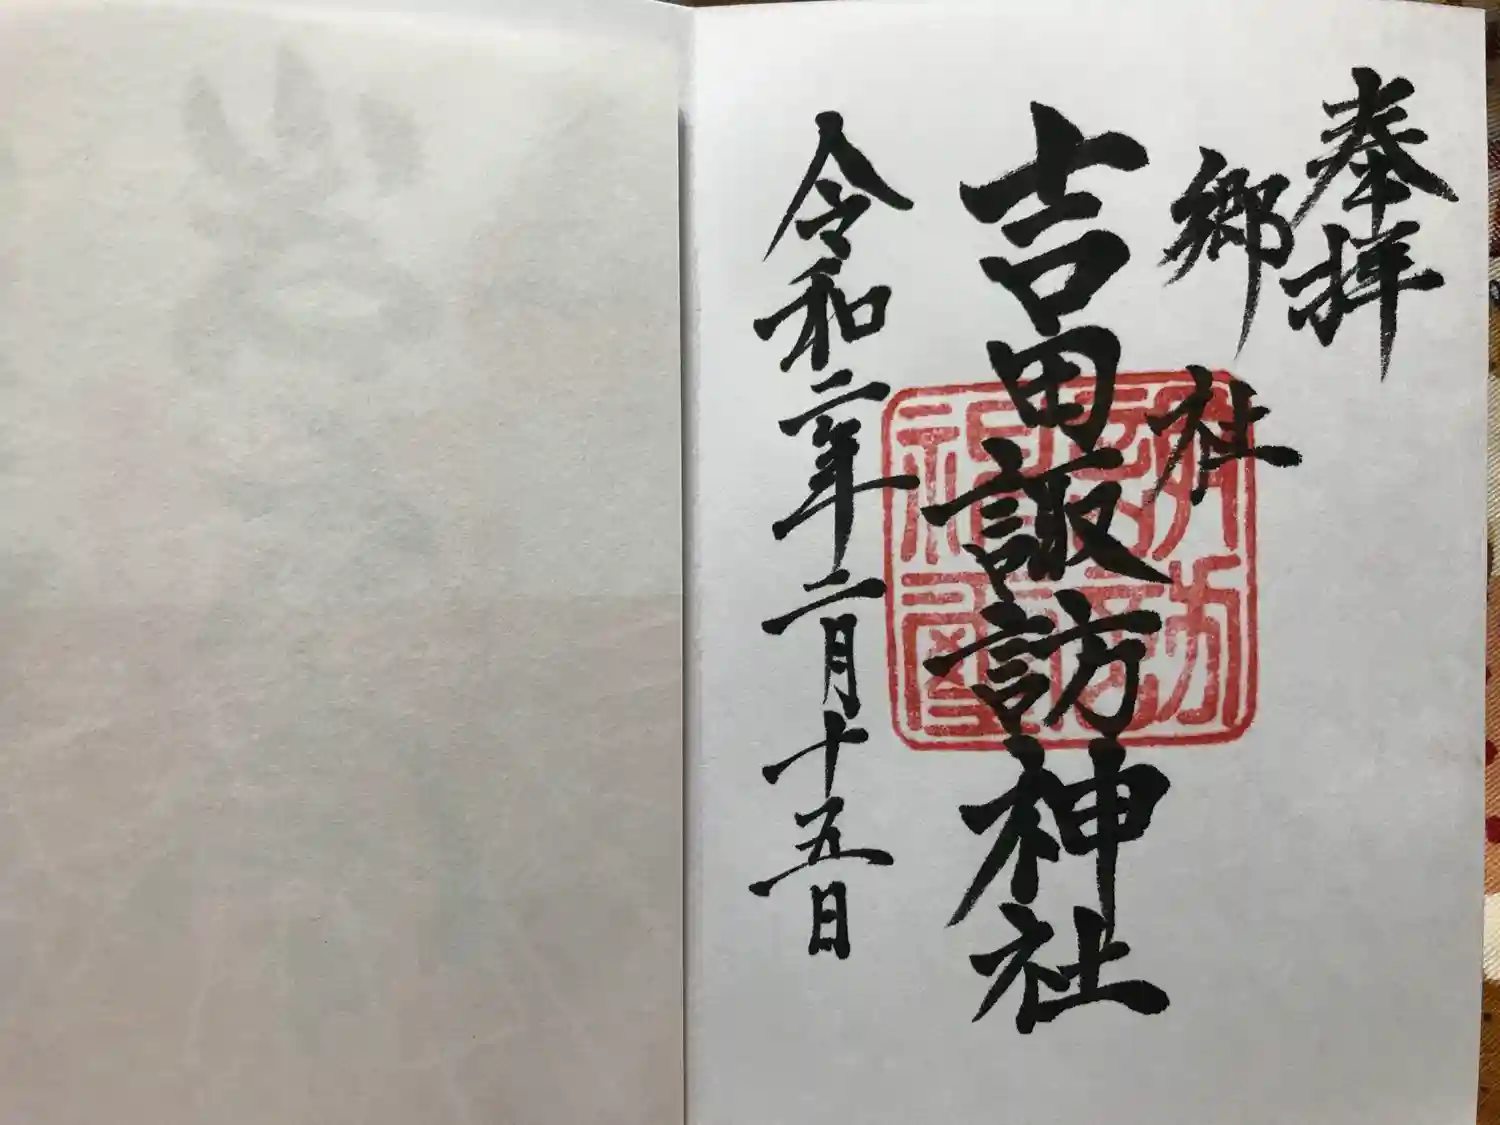 奉拝
郷社
吉田諏訪神社
令和二年二月十五日
諏訪
神璽